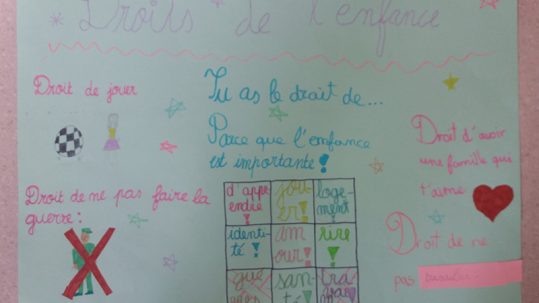 Droits de l'enfance
Droit de jouer
Tu as le droit de...
Parce que l'enfance
est importante !
Droit d'avoir
une famille qui
t'aime
Droit de ne pas faire la
guerre :
d'appr
endre !
jou
er !
loge-
ment
identi-
té !
am
our !
rire
!
gue
san-
té !
tra
vai
Droit de ne
pas